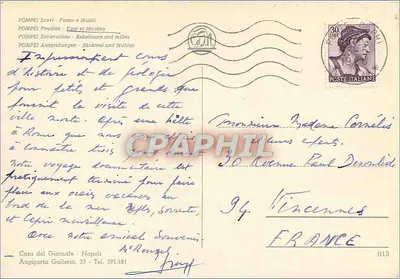 POMPEI Scavi - Forno e Mulini
POMPEI Fouilles - Four et Moulins
POMPEI Excavations - Bakehouse and milles
POMPEI Ausgrabungen - Bäckerei und Mühlen
30
POSTE ITALIANE
Impressionnant cours
d'histoire et de géologie
pour petits et grands que
fournit la visite de cette
ville morte. Après une halte
à Rome que nous
à connaître
notre voyage documentaire est
pratiquement terminé pour faire
place aux vraies vacances au
bord de la mer Naples, Sorrente,
et Capri merveilleuse.
Avec notre amical souvenir.
Monsieur Madame Cornélis
et leurs enfants
30 Avenue Paul Déroulède
94. Vincennes
FRANCE
CPAPHIL
Casa del Giornale - Napoli
Angiporto Galleria, 33 - Tel. 391.481
813